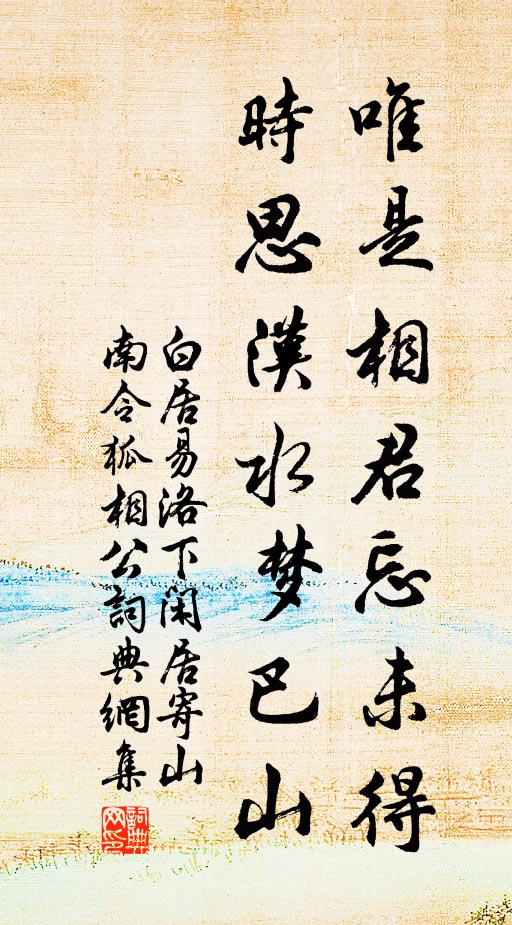 唯是相君忘未得
時思漢水梦巴山
白居易洛下闲居寄山
南令狐相公詞典網集
詞典网印